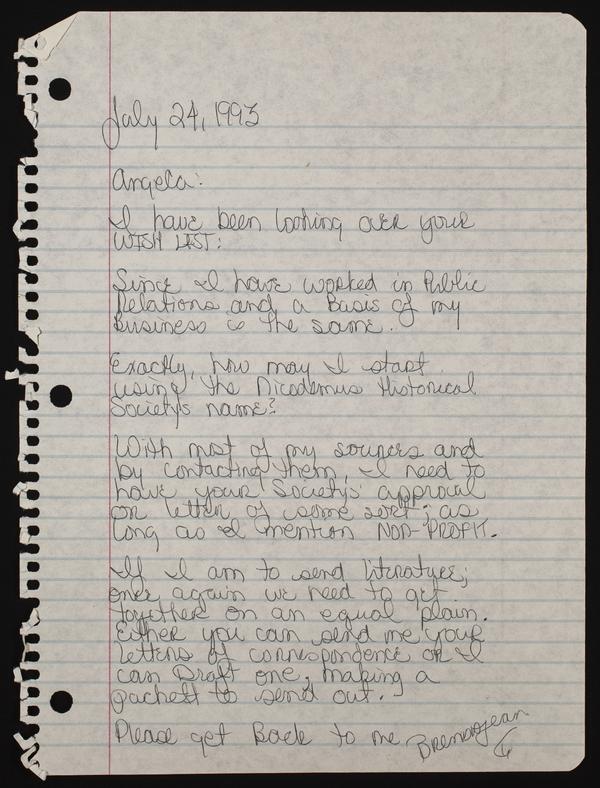 July 24, 1993
Angela:
I have been looking over your
WISH LIST:
Since I have worked in Public
Relations and a Basis of my
Business is the same.
Exactly, how may I start
using the Nicodemus Historical
Society's name?
With most of my sources and
by contacting them, I need to
have your Society's approval
or letter of some sort; as
long as I mention NON-PROFIT.
If I am to send literature;
once again we need to get
together on an equal plain.
Either you can send me your
letters of correspondence or I
can Draft one, making a
packett to send out.
Please get Back to me Brendajean